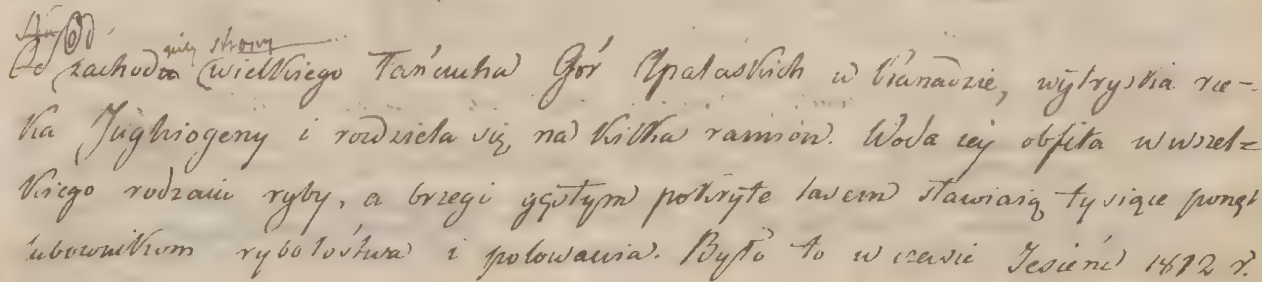 niej strony
Od zachodu wielkiego Łańcucha Gór Apalaskich w Kanadzie, wytryska rze-
ka Jughiogeny i rozdziela się na kilka ramion. Woda iey obfita w wszel=
kiego rodzaiu ryby, a brzegi gęstym pokryte lasem stawiaią tysiące ponęt
lubownikom rybołóstwa i polowania. Było to w czasie Jesieni 1812 r.